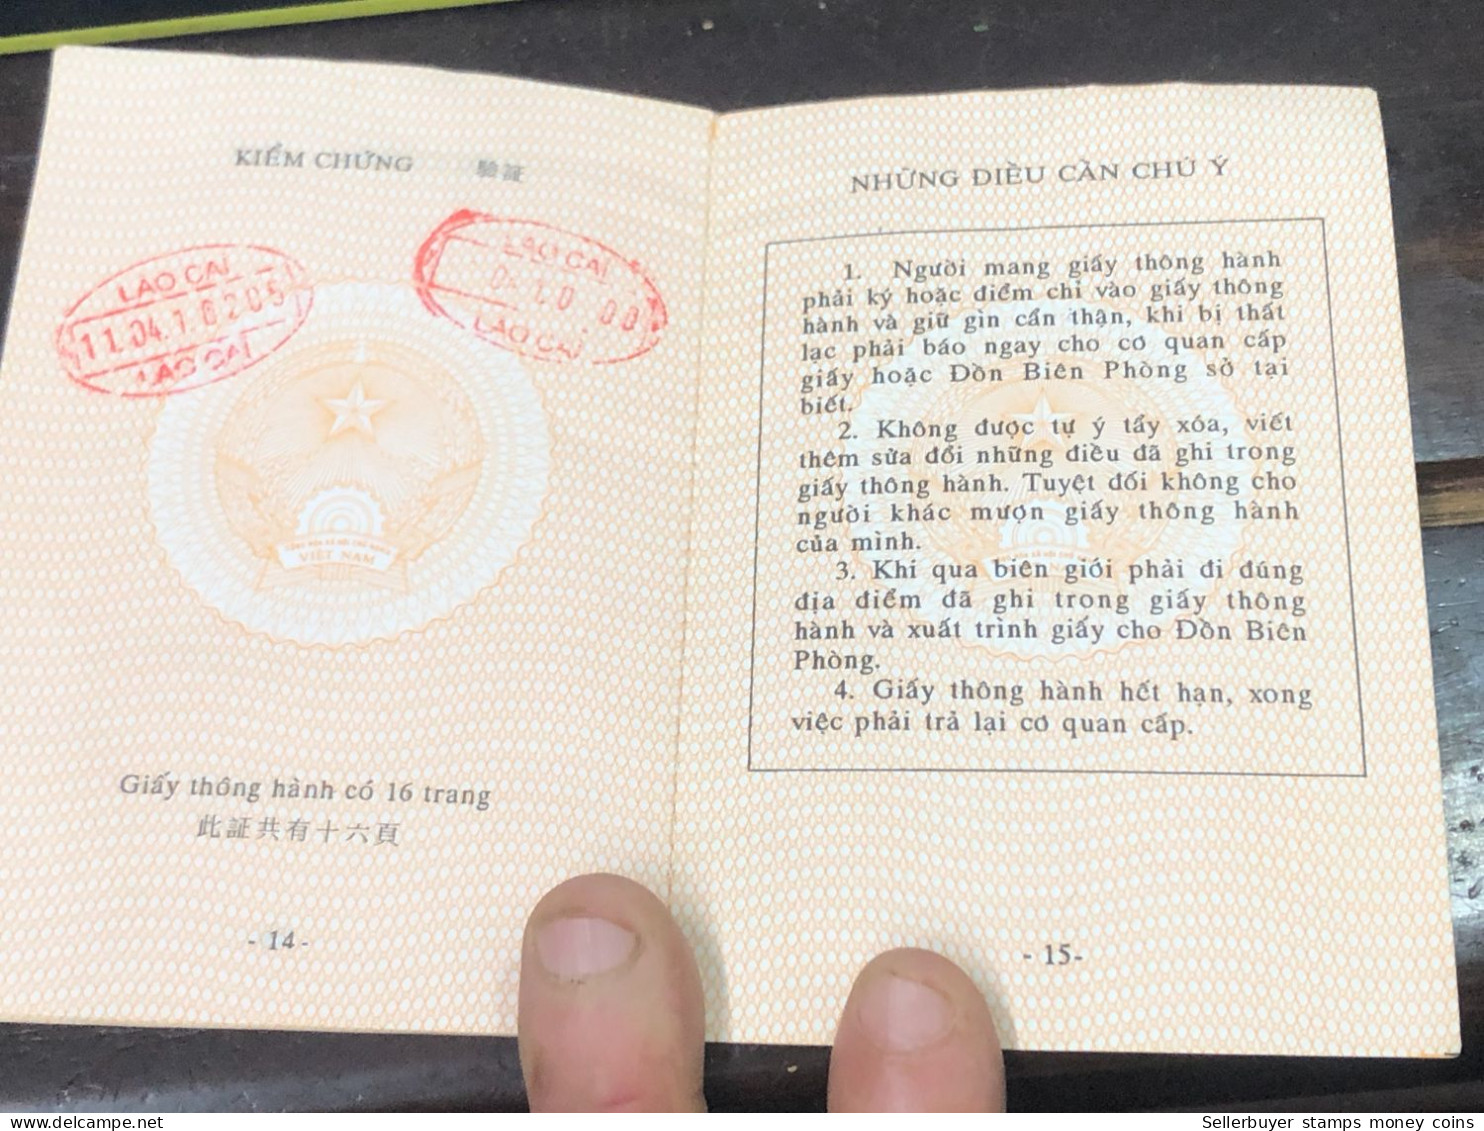 KIỂM CHỨNG 驗証
LAO CAI
LAO CAI
LAO CAI
LAO CAI
VIỆT NAM
Giấy thông hành có 16 trang
此証共有十六頁
- 14 -
NHỮNG ĐIỀU CẦN CHÚ Ý
1. Người mang giấy thông hành
phải ký hoặc điểm chỉ vào giấy thông
hành và giữ gìn cẩn thận, khi bị thất
lạc phải báo ngay cho cơ quan cấp
giấy hoặc Đồn Biên Phòng sở tại
biết.
2. Không được tự ý tẩy xóa, viết
thêm sửa đổi những điều đã ghi trong
giấy thông hành. Tuyệt đối không cho
người khác mượn giấy thông hành
của mình.
3. Khi qua biên giới phải đi đúng
địa điểm đã ghi trong giấy thông
hành và xuất trình giấy cho Đồn Biên
Phòng.
4. Giấy thông hành hết hạn, xong
việc phải trả lại cơ quan cấp.
- 15-
Sellerbuyer stamps money coins